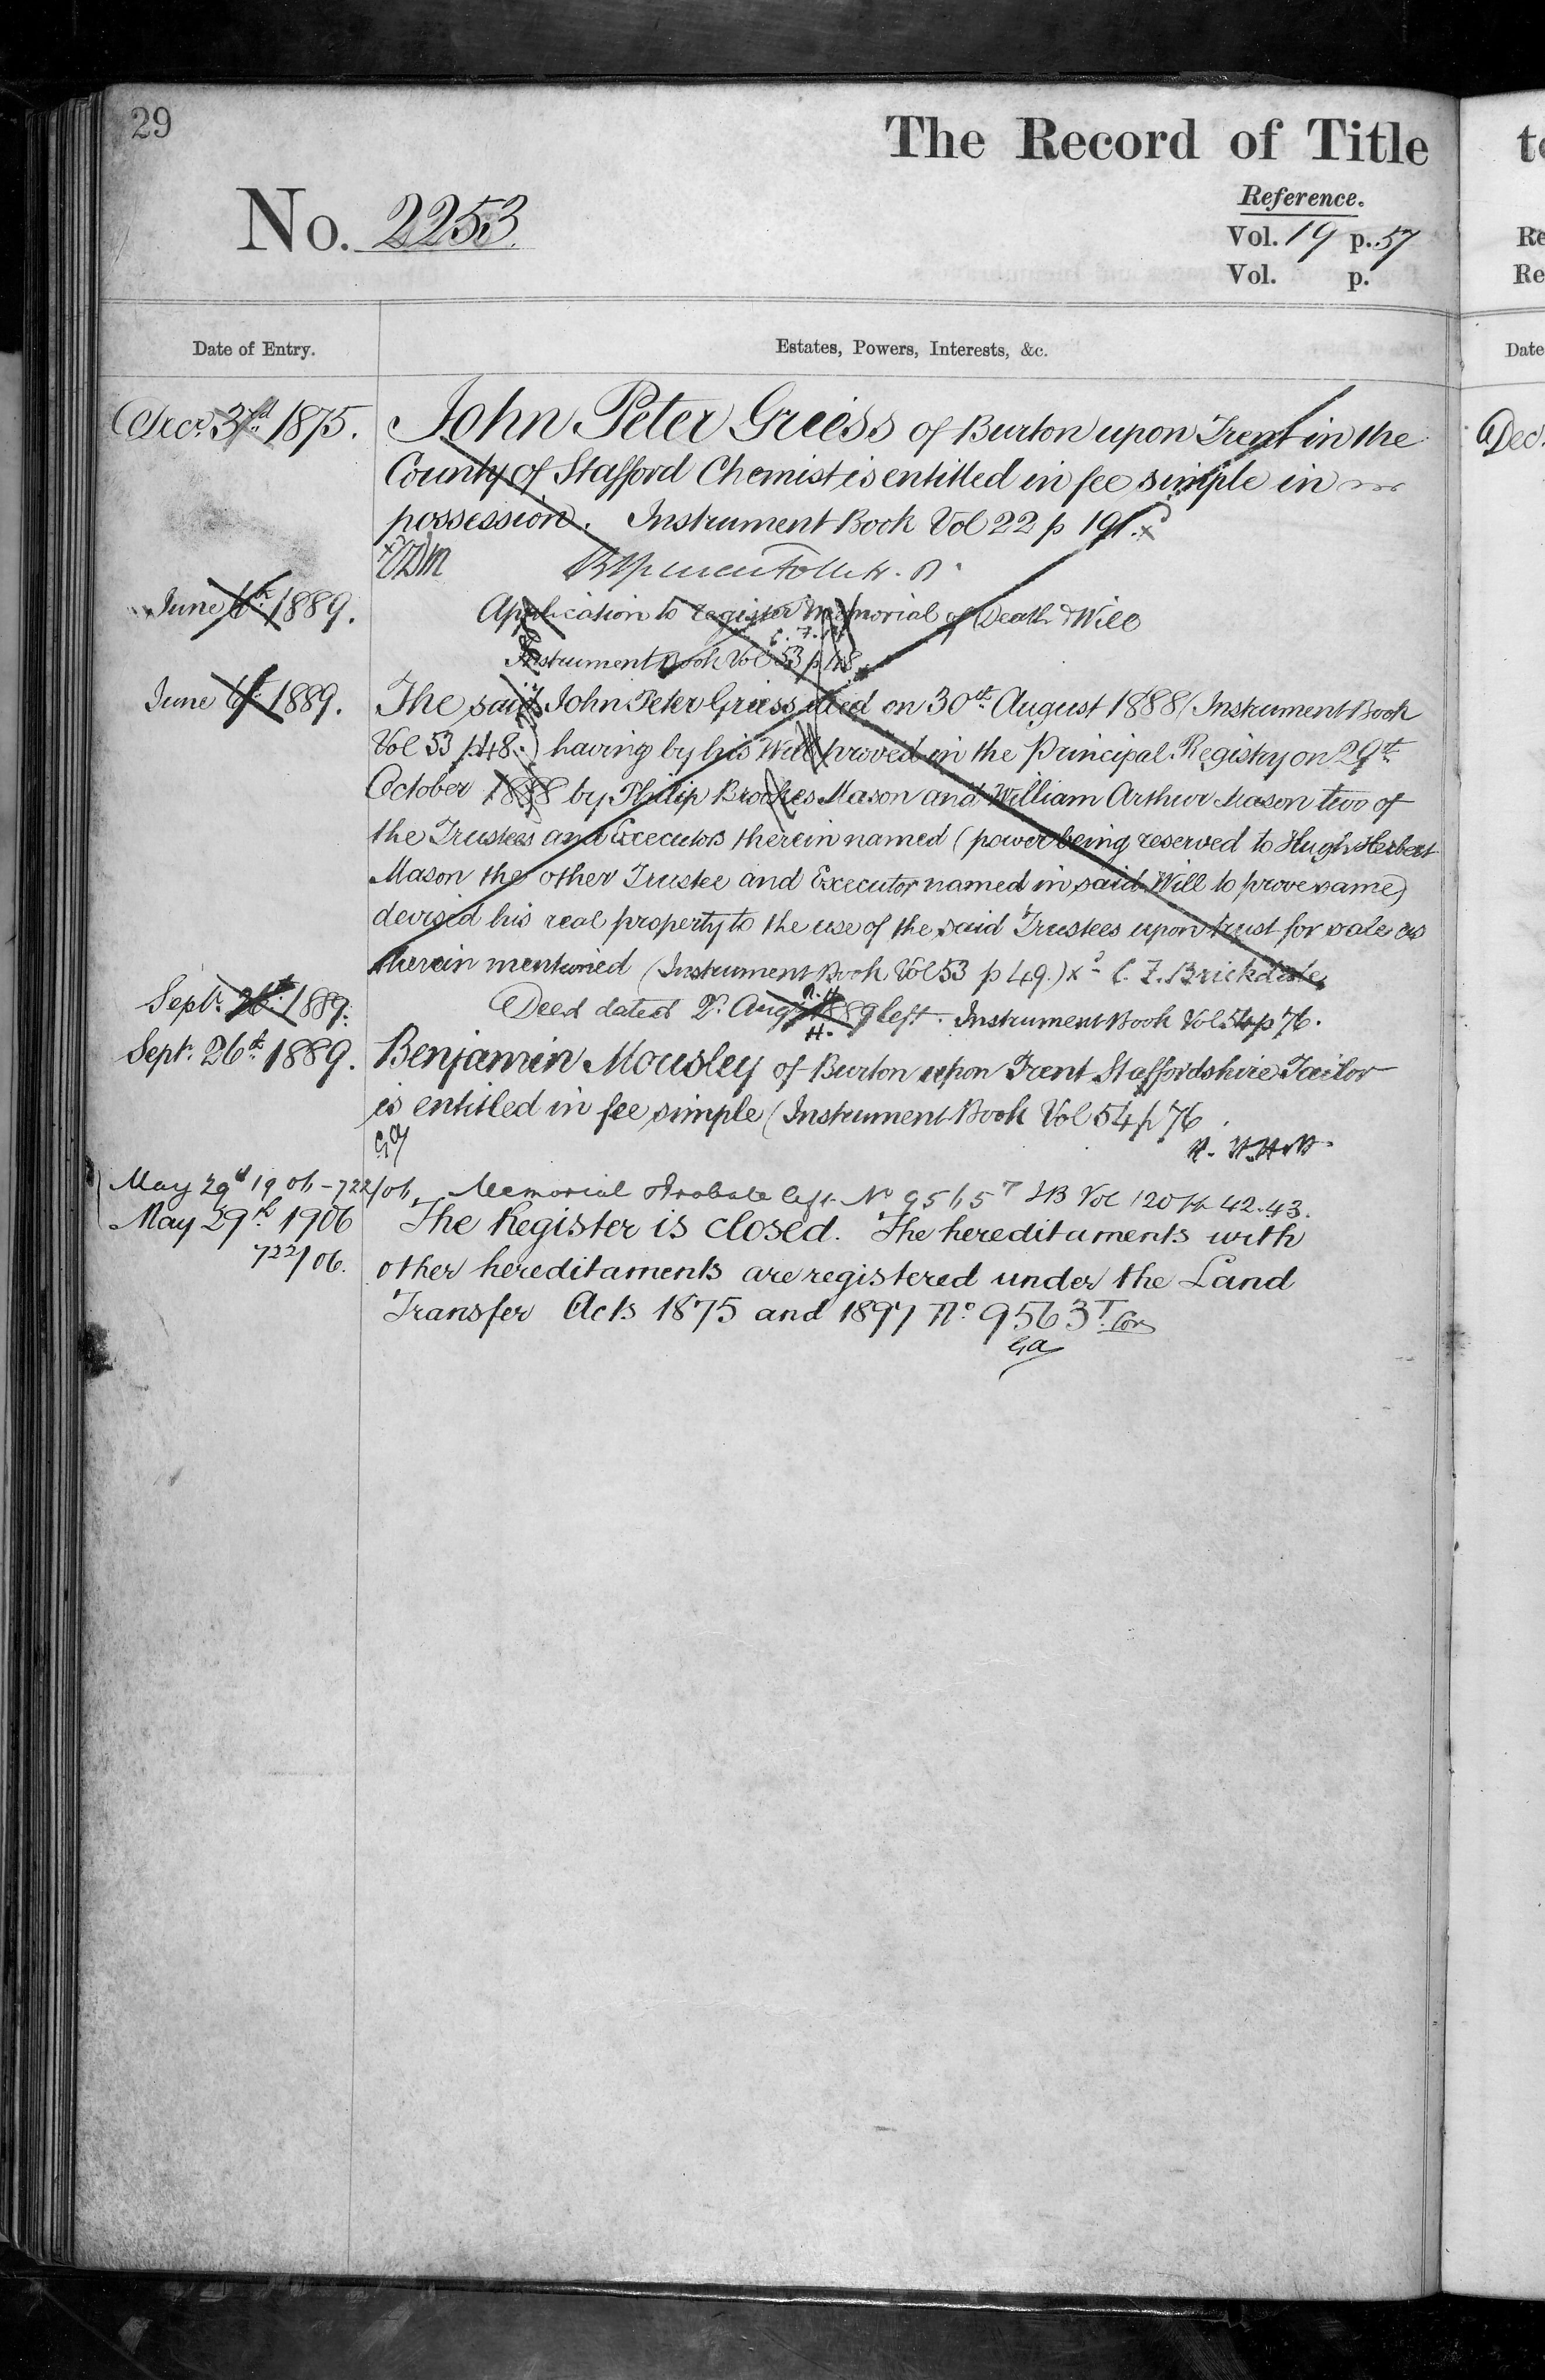 29
The Record of Title
Reference.
No. 2253.
Vol. 19 p. 57
Vol. p.
Date of Entry.
Estates, Powers, Interests, &c.
Decr. 3rd 1875.
John Peter Griess of Burton upon Trent in the
County of Stafford Chemist is entitled in fee simple in
possession. Instrument Book Vol 22 p 191.
June 6th 1889.
Application to register Memorial of Death & Will
Instrument Book Vol 53 p 48
June 6th 1889.
The said John Peter Griess died on 30th August 1888 (Instrument Book
Vol 53 p 48.) having by his Will proved in the Principal Registry on 29th
October 1888 by Philip Brookes Mason and William Arthur Mason two of
the Trustees and Executors therein named (power being reserved to Hugh Herbert
Mason the other Trustee and Executor named in said Will to prove same)
devised his real property to the use of the said Trustees upon trust for sale as
therein mentioned (Instrument Book Vol 53 p 49.) C. F. Brickdale
Sept. 26th 1889.
Deed dated 2d Augt 1889 left. Instrument Book Vol 54 p 76.
Sept. 26th 1889.
Benjamin Mousley of Burton upon Trent Staffordshire Tailor
is entitled in fee simple (Instrument Book Vol 54 p 76
May 29th 1906 - 722/06. Memorial Probate left No 9565T IB Vol 120 pp 42.43.
May 29th 1906
722/06.
The Register is closed. The hereditaments with
other hereditaments are registered under the Land
Transfer Acts 1875 and 1897 No. 9563T.
GA
t
Re
Re
Date
Dec.